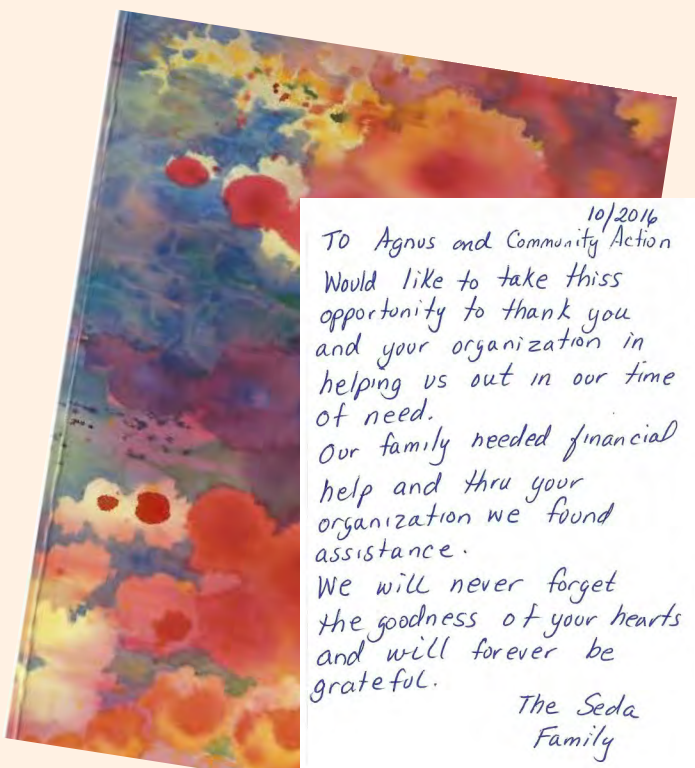 10/2016
TO Agnus and Community Action
Would like to take thiss
opportunity to thank you
and your organization in
helping us out in our time
of need.
Our family needed financial
help and thru your
organization we found
assistance.
We will never forget
the goodness of your hearts
and will forever be
grateful.
The Seda
Family